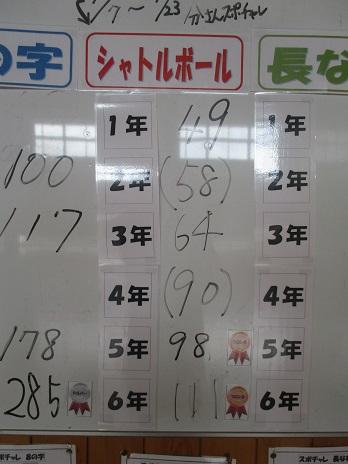 1/7～1/23 かさんスポチャレ
の字
シャトルボール
長な
1年 49 1年
100 2年 (58) 2年
117 3年 64 3年
4年 (90) 4年
178 5年 98 5年
285 6年 111 6年
スポチャレ 8の字
スポチャレ 長な